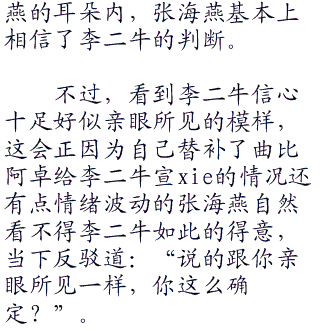 燕的耳朵内，张海燕基本上
相信了李二牛的判断。
不过，看到李二牛信心
十足好似亲眼所见的模样，
这会正因为自己替补了曲比
阿卓给李二牛宣xie的情况还
有点情绪波动的张海燕自然
看不得李二牛如此的得意，
当下反驳道：“说的跟你亲
眼所见一样，你这么确
定？”。